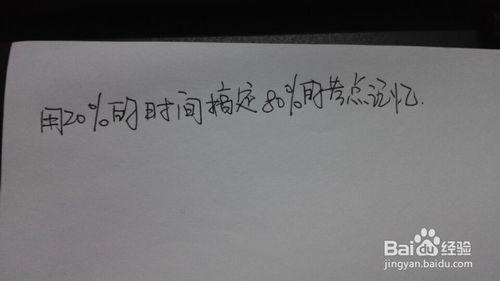 用20%的时间搞定80%的考点记忆.
Baidu 经验
jingyan.baidu.com